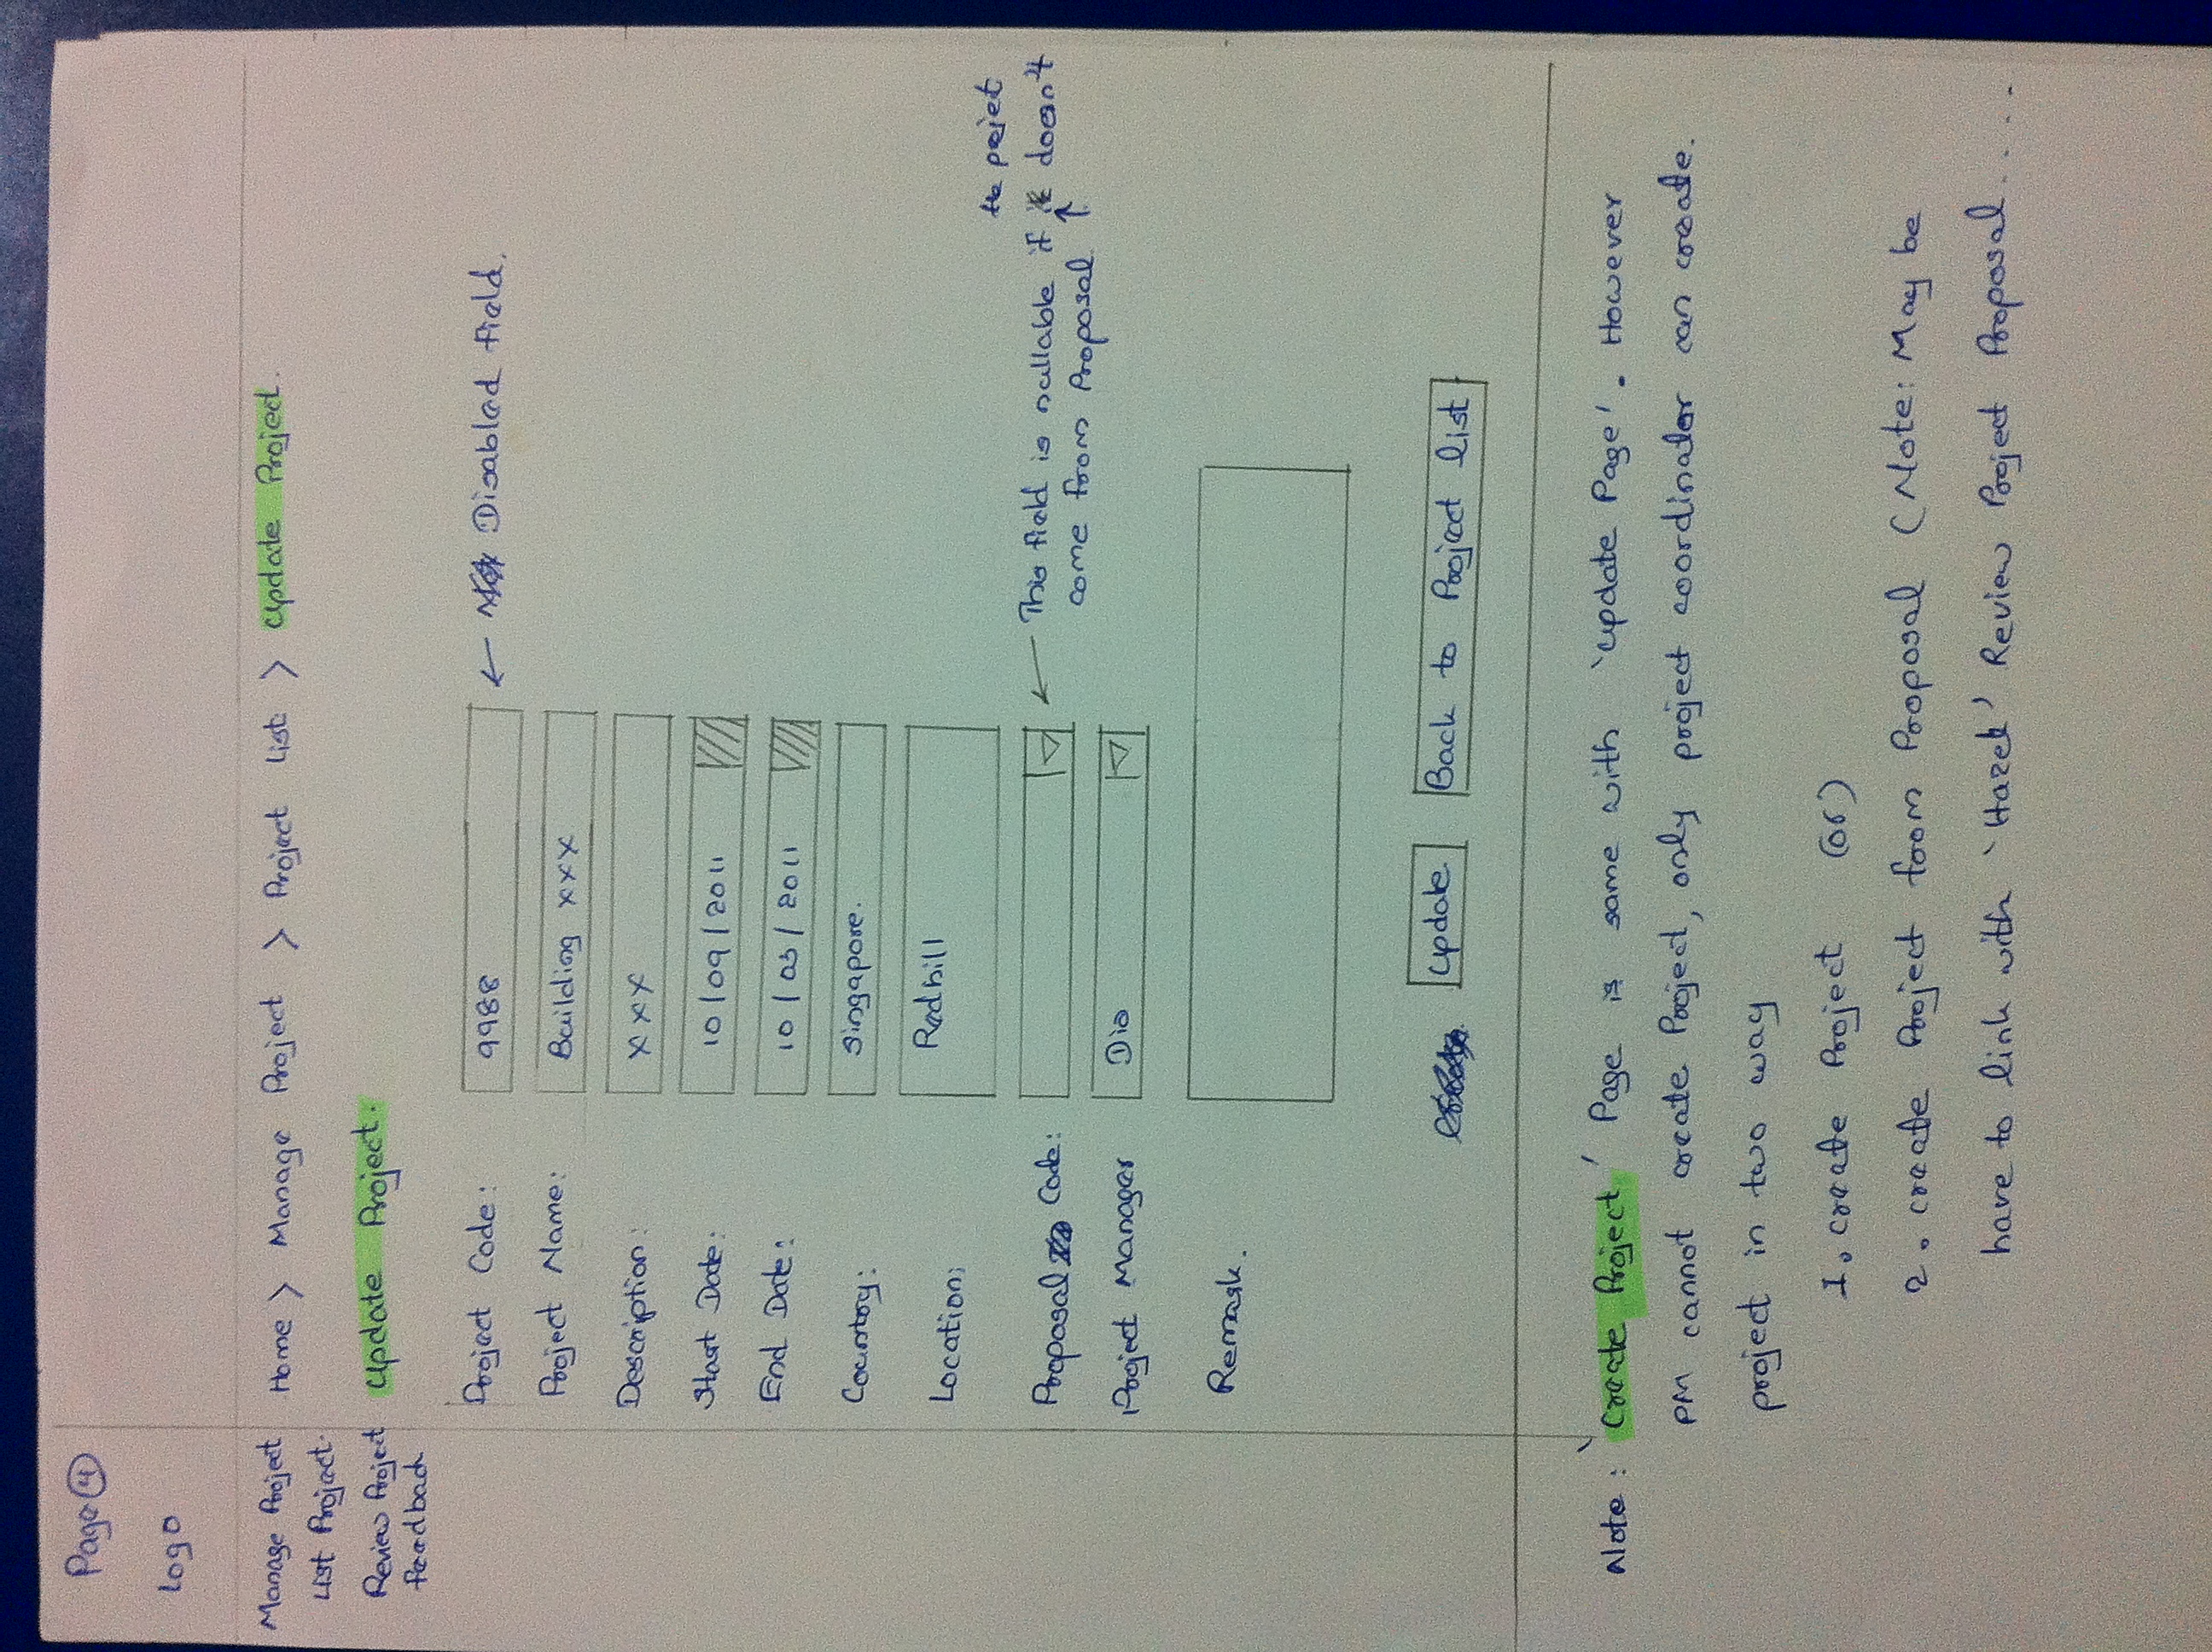 Page 4
Logo
Manage Project
List Project.
Review Project
feedback
Home > Manage Project > Project List > Update Project.
Update Project.
Project Code: 9988 ← Disabled field.
Project Name: Building xxx
Description: xxx
Start Date: 10/09/2011
End Date: 10/03/2011
Country: Singapore.
Location: Redhill
the projet
Proposal Code: ← This field is nullable if ↑ doesn't
come from Proposal
Project Manager Dio
Remark.
Update Back to Project list
Note: 'Create Project' Page is same with 'Update Page'. However
PM cannot create Project, only project coordinator can create.
project in two way
1. create Project (or)
2. create Project from Proposal (Note: May be
have to link with 'Hazel' Review Project Proposal.....